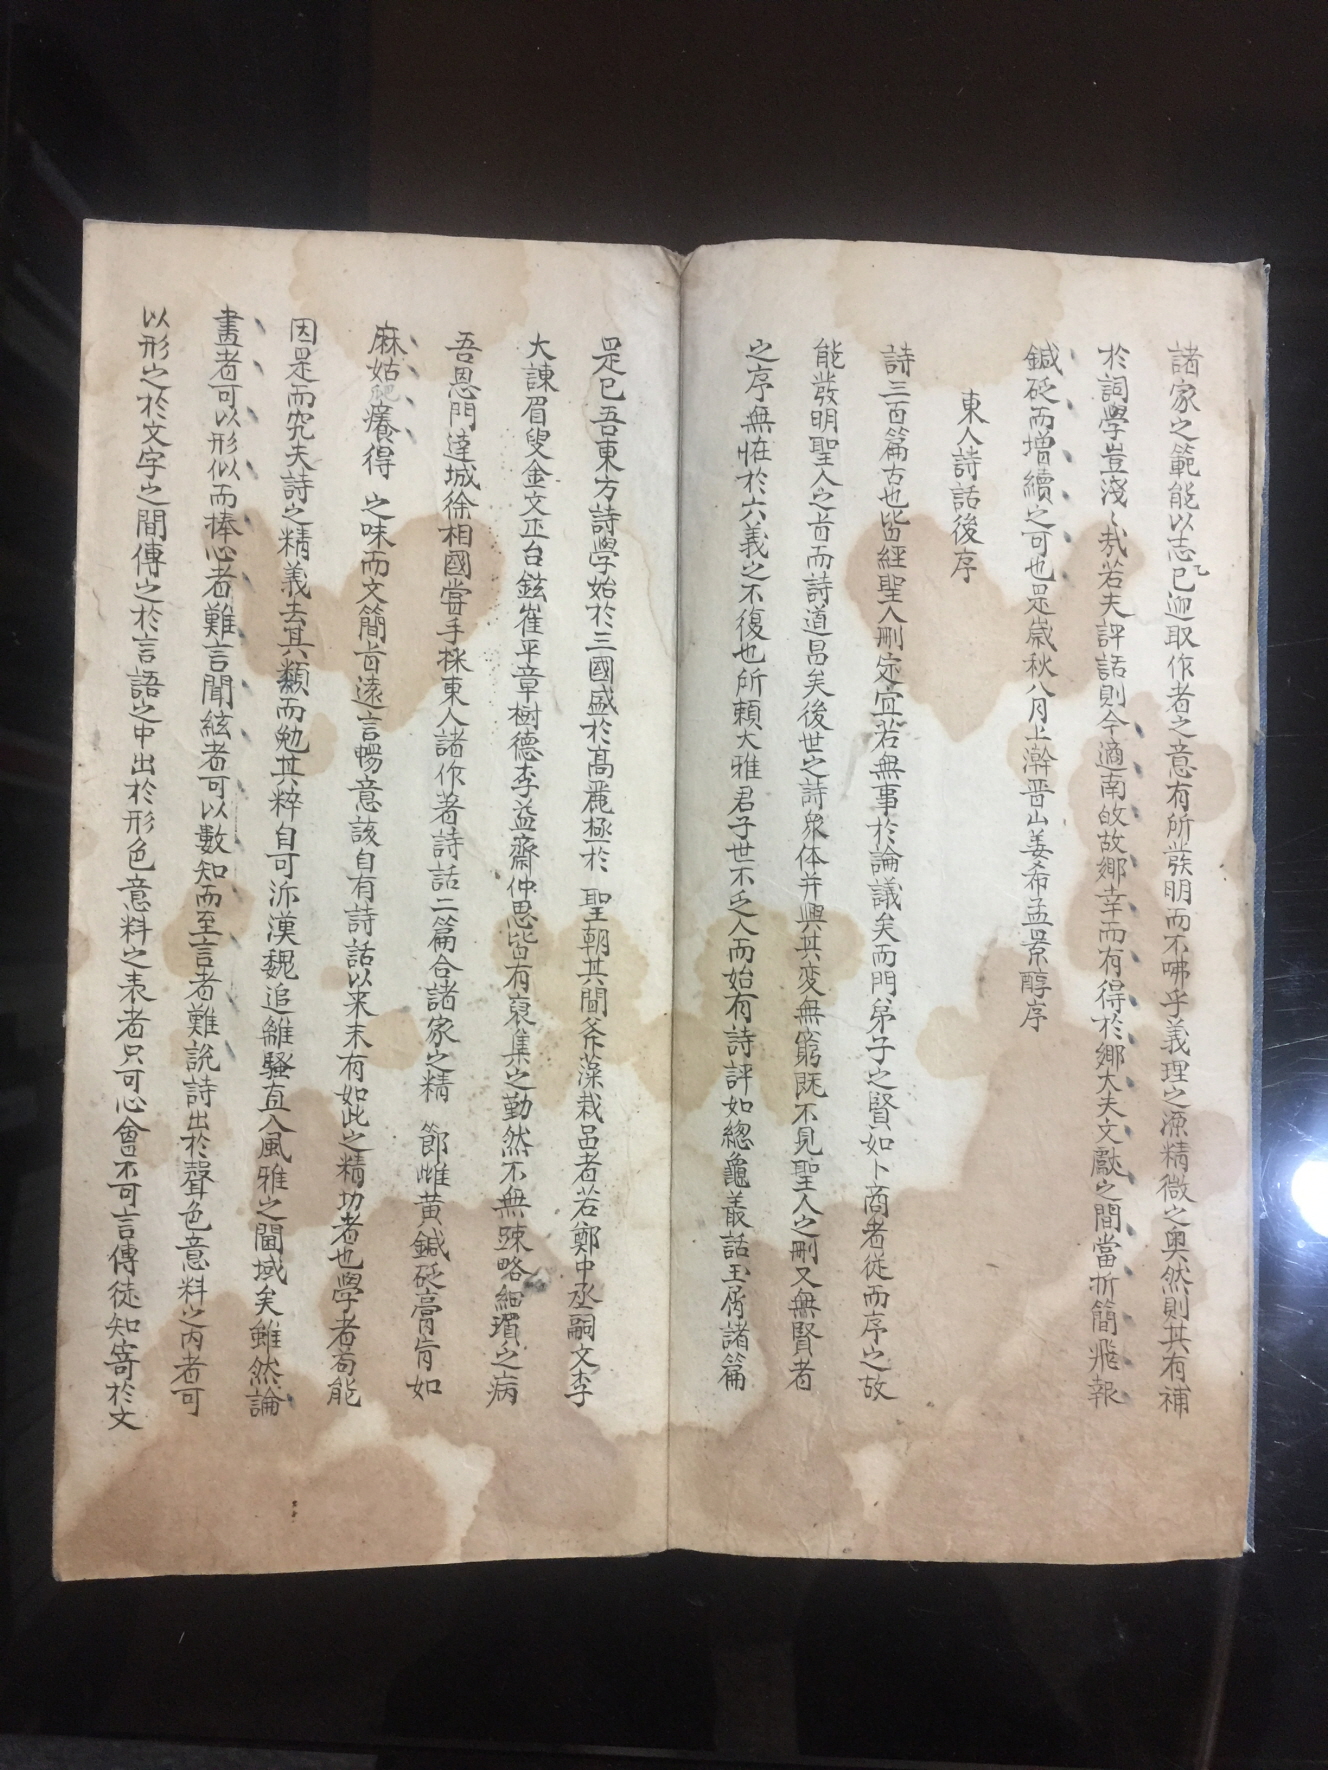 諸家之範能以志已迎取作者之意有所發明而不咈乎義理之源精微之奧然則其有補
於詞學豈淺〻哉若夫評話則今適南故故鄉幸而有得於鄉大夫文獻之間當折簡飛報
鍼砭而增續之可也是歲秋八月上澣晋山姜希孟景醇序
東人詩話後序
詩三百篇古也皆經聖人刪定宜若無事於論議矣而門弟子之賢如卜商者從而序之故
能發明聖人之旨而詩道昌矣後世之詩衆体并興其変無窮既不見聖人之刪又無賢者
之序無恠於六義之不復也所頼大雅君子世不乏人而始有詩評如總龜叢話玉屑諸篇
是已吾東方詩學始於三國盛於高麗極於 聖朝其間斧藻栽品者若鄭中丞嗣文李
大諫眉叟金文正台鉉崔平章樹德李益齋仲思皆有裒集之勤然不無踈略細瑣之病
吾恩門達城徐相國嘗手採東人諸作著詩話二篇合諸家之精 節雌黃鍼砭膏肓如
麻姑爬癢得 之味而文簡旨遠言暢意該自有詩話以来未有如此之精功者也學者苟能
因是而究夫詩之精義去其纇而勉其粹自可泝漢魏追離騷直入風雅之閫域矣雖然論
畫者可以形似而捧心者難言聞絃者可以數知而至言者難說詩出於聲色意料之内者可
以形之於文字之間傳之於言語之中出於形色意料之表者只可心會不可言傳徒知寄於文